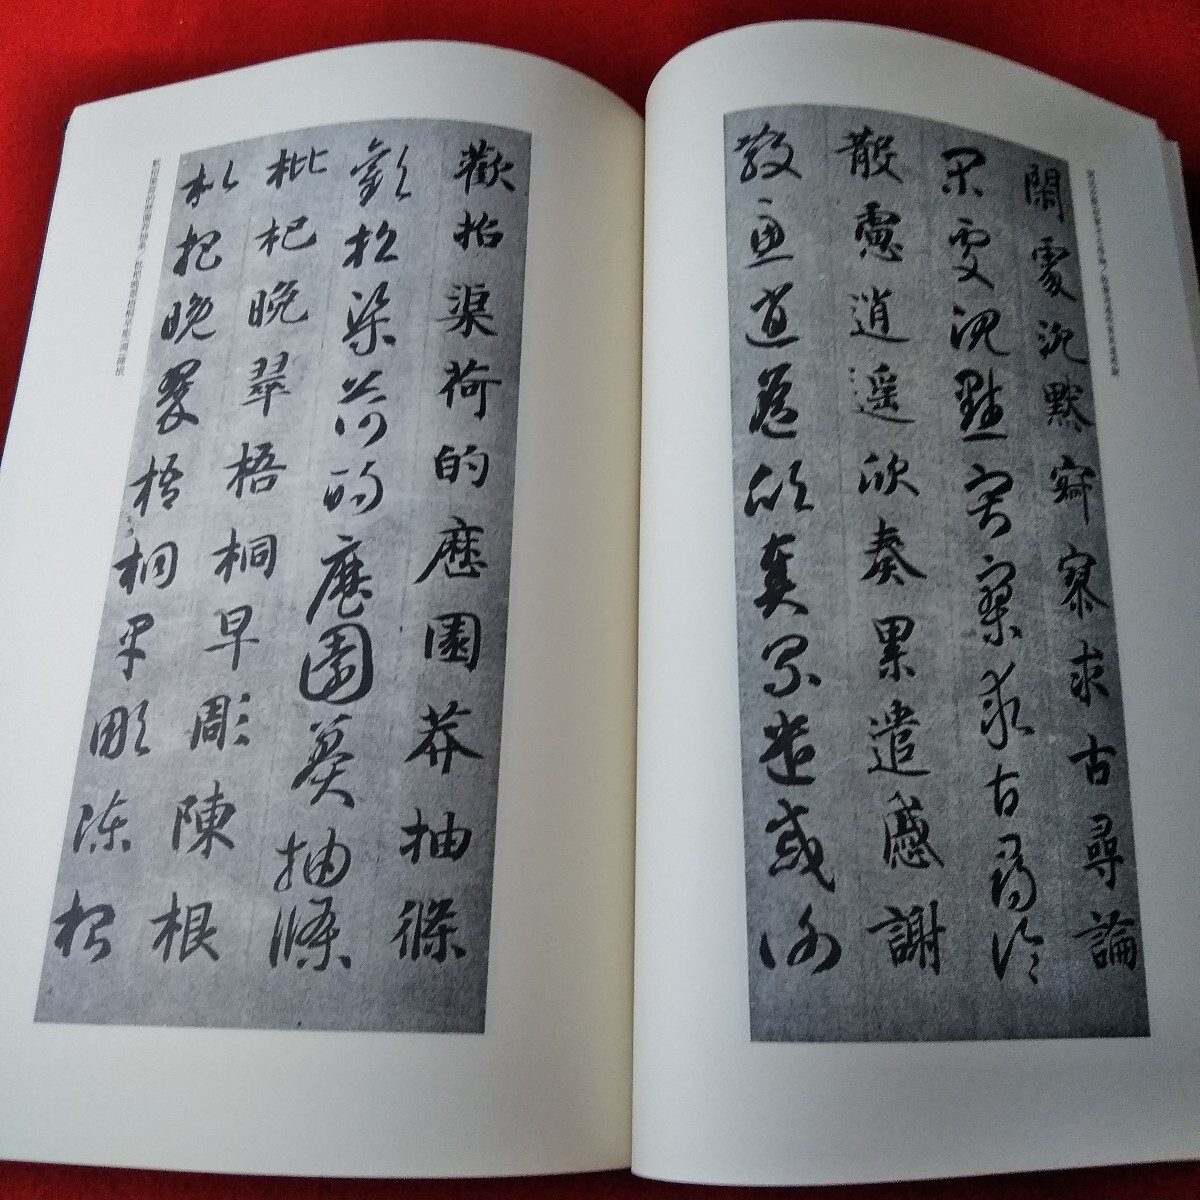 閑處沉默寂寥求古尋論
閑處沉默寂寥求古尋論
散慮逍遙欣奏累遣慼謝
散慮逍遙欣奏累遣慼謝
歡招渠荷的歷園莽抽條
歡招渠荷的歷園莽抽條
枇杷晚翠梧桐早彫陳根
枇杷晚翠梧桐早彫陳根